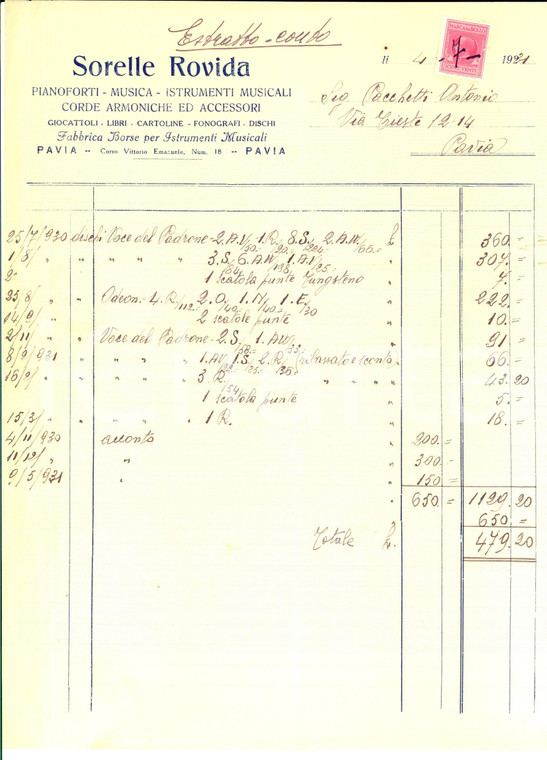 Estratto-conto
Sorelle Rovida
PIANOFORTI - MUSICA - ISTRUMENTI MUSICALI
CORDE ARMONICHE ED ACCESSORI
GIOCATTOLI - LIBRI - CARTOLINE - FONOGRAFI - DISCHI
Fabbrica Borse per Istrumenti Musicali
PAVIA -- Corso Vittorio Emanuele, Num. 18 -- PAVIA
li 4 - 7 - 1931
MARCA DA BOLLO
Sig. Pacchetti Antonio
Via Trieste 12-14
Pavia
25/7/930 dischi Voce del Padrone - 2. A.V. 1. R. 8. S. 2. A.W. £ 360. =
1/8/ " " " " 3. S. 6. A.W. 1. A.V. " 307. =
2- 1 scatola punte Tungsteno " 7. =
25/8/ " Odeon - 4. R. 2. O. 1. N. 1. E. " 222. =
14/9/ 2 scatole punte " 10. =
2/11/ " Voce del Padrone - 2. S. 1. A.W. " 91 =
8/2/931 " " " " 1. A.V. 1. S. 2. R. sconto " 66. =
16/2/ " " " " 3. R. " " " 43. 20
1 scatola punte " 5. =
15/3/ " " " " 1 R. " 18. =
4/11/930 acconto " 200. =
11/12/ " " " 300. =
9/5/931 " " 150 =
" 650 = 1129. 20
650 =
Totale £. 479. 20